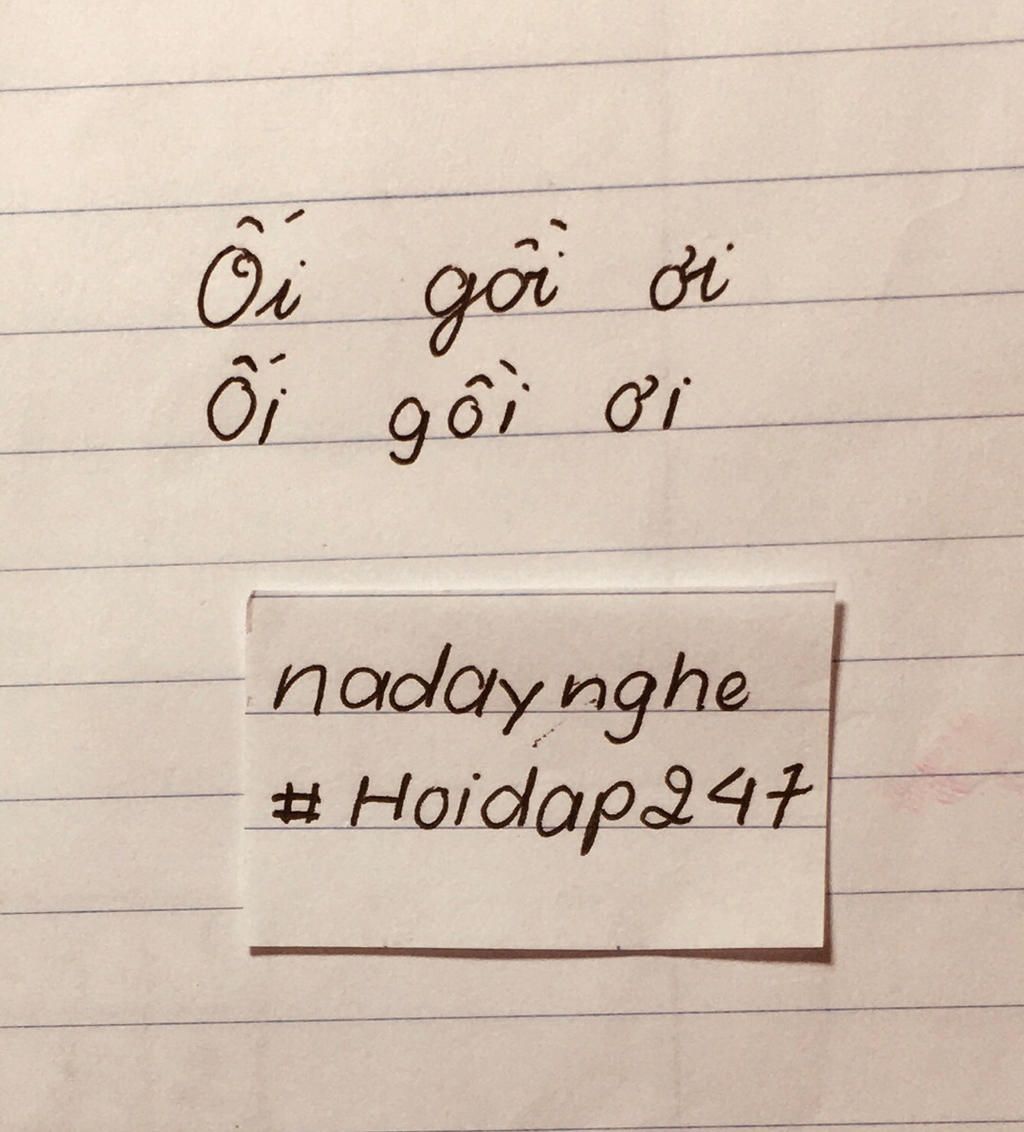 Ối gồi ơi
Ối gồi ơi
nadaynghe
#Hoidap247